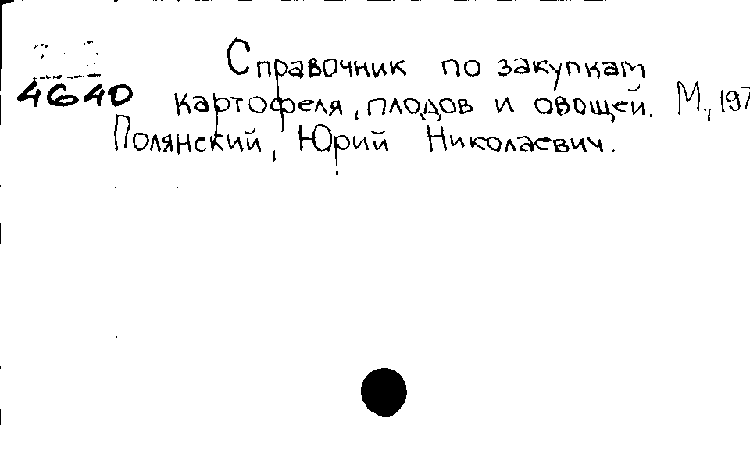 Справочник по закупкам
4640 картофеля, плодов и овощей. М., 197
Полянский, Юрий Николаевич.